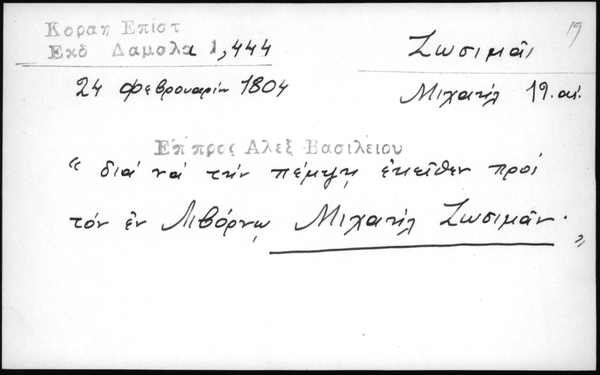 Κοραη Επιστ
Εκδ Δαμαλα 1,444
Ζωσιμᾶς
19
24 Φεβρουαρίου 1804
Μιχαήλ 19. αἰ.
Επ προς Αλεξ Βασιλειου
“ διά νά τήν πέμψῃ ἐκεῖθεν πρός
τόν ἐν Λιβόρνῳ Μιχαήλ Ζωσιμᾶν. ”